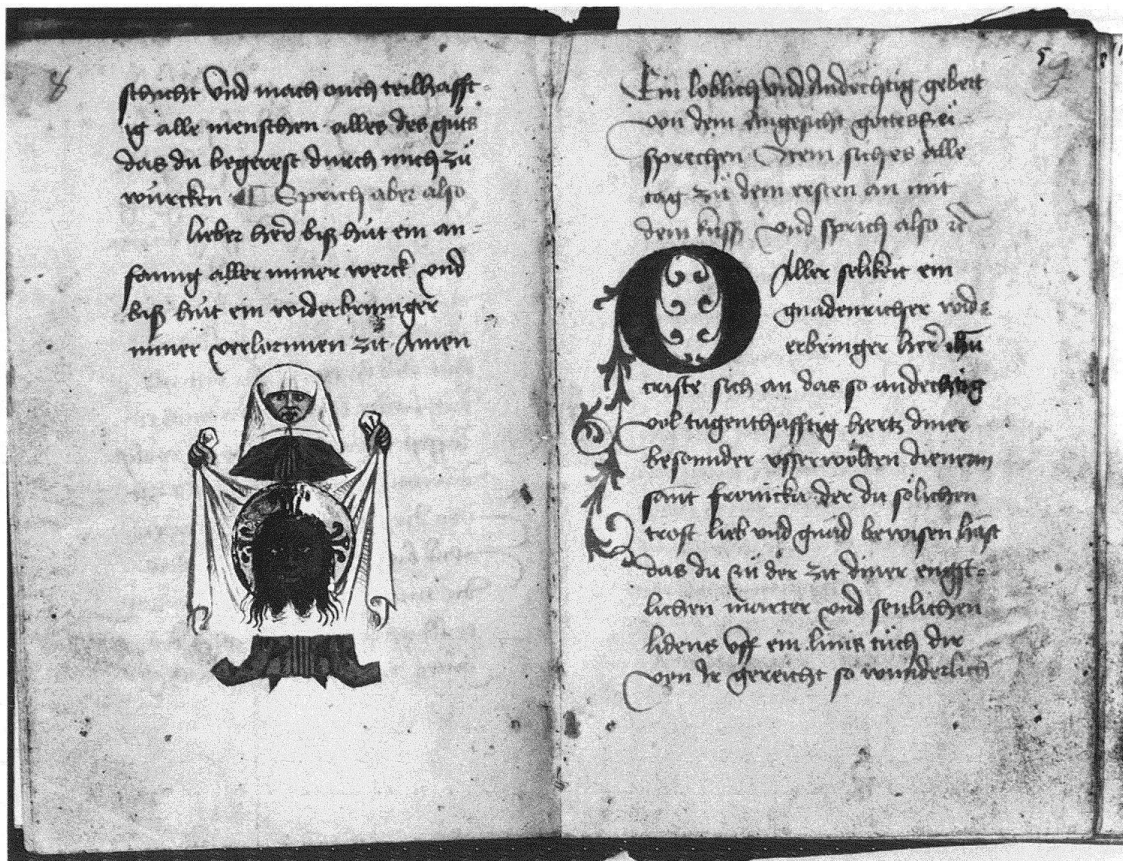 8
schicht vnd mach ouch teilhafft-
ig alle menschen alles des guts
das du begerest durch mich zů
würcken ¶ Sprich aber also
lieber herr biß hüt ein an-
fanng aller miner werck vnd
biß hüt ein widerbringer
miner verlornnen zit Amen
5
Ein loblich vnd andechtig gebett
von dem angesicht gottes zů
sprechen Item sich es alle
tag zů dem ersten an mit
dem kuss vnd sprich also
O Aller selikeit ein
gnadenricher wid-
erbringer herr ihu
criste sich an das so andechtig
vol tugenthafftig hertz diner
besonnder vsserwölten dienerin
sant fronicka der du sölichen
trost lieb vnd gnad bewisen hast
das du zů der zit diner engst-
lichen marter vnd senlichen
lidens vff ein linis tůch dir
von ir gereicht so wunderlich